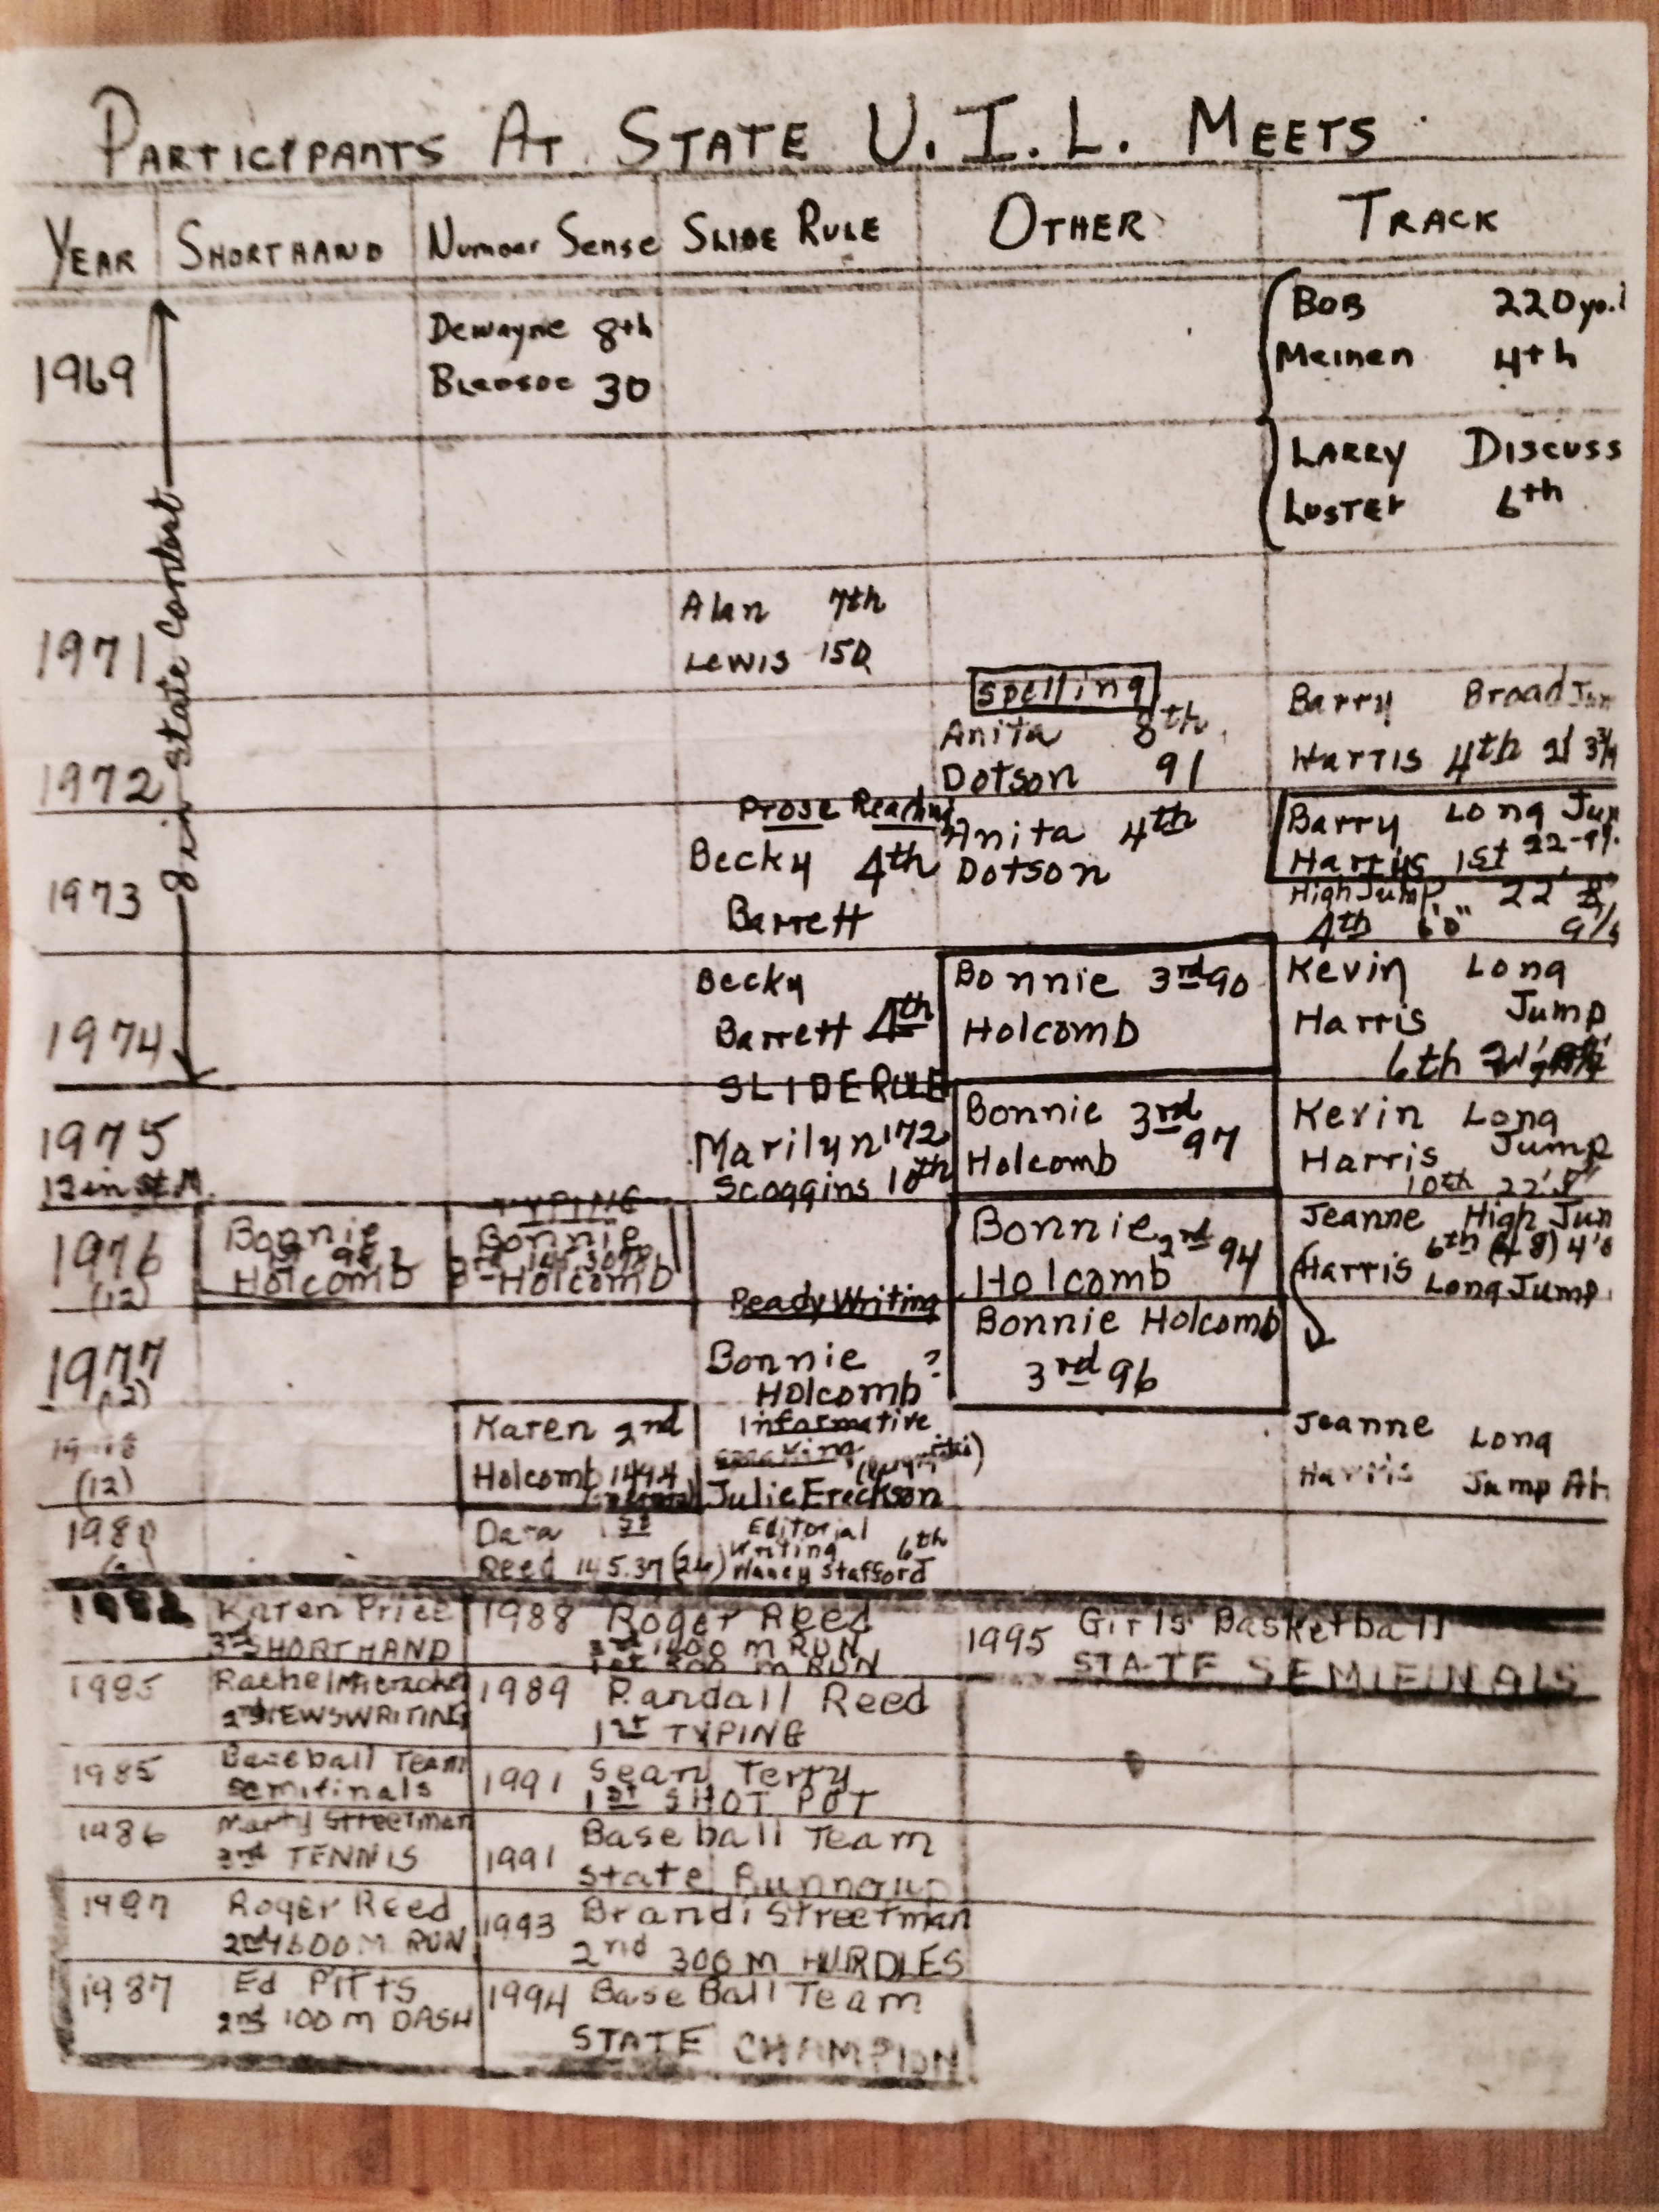 PARTICIPANTS AT STATE U.I.L. MEETS
YEAR SHORTHAND Number Sense SLIDE RULE OTHER TRACK
8 in state contest
1969
Dewayne 8th
30
BOB 220 yd.
Meinen 4th
LARRY DISCUSS
LUSTER 6th
1971
Alan 7th
Lewis 150
1972
Spelling
Anita 8th
Dotson 91
Barry Broad Jum
Harris 4th 21' 3¾
1973
Prose Reading
Becky 4th
Barrett
Anita 4th
Dotson
Barry Long Jum
Harris 1st
High Jump 22'
4th 6'0"
1974
Becky
Barrett 4th
Bonnie 3rd 90
Holcomb
Kevin Long
Harris Jump
6th
1975
12 in St. M.
SLIDE RULE
Marilyn 172
Scoggins 10th
Bonnie 3rd
Holcomb 97
Kevin Long
Harris Jump
10th 22'
1976
(12)
Bonnie
1st
Holcomb
TYPING
Bonnie
3rd
Holcomb
Bonnie 2nd 94
Holcomb
Jeanne High Jum
Harris 6th (4'8)
Long Jump
1977
(12)
Ready Writing
Bonnie ?
Holcomb
Bonnie Holcomb
3rd 96
(12)
Karen 2nd
Holcomb
Informative
speaking
Julie Erickson
Jeanne Long
Harris Jump Alt.
1980
Dana
Reed 145.37
Editorial
Writing 6th
Nancy Stafford
Karen Price
3rd SHORTHAND
1988 Roger Reed
3rd 1600 M RUN
1st 800 M RUN
1995 Girls' Basketball
STATE SEMIFINALS
1985 Rachel
2nd NEWSWRITING
1989 Randall Reed
1st TYPING
1985 Baseball Team
Semifinals
1991 Sean Terry
1st SHOT POT
1986 Marty Streetman
3rd TENNIS
1991 Baseball Team
State Runnerup
1987 Roger Reed
2nd 1600 M RUN
1993 Brandi Streetman
2nd 300 M HURDLES
1987 Ed Pitts
2nd 100 M DASH
1994 BaseBall Team
STATE CHAMPION